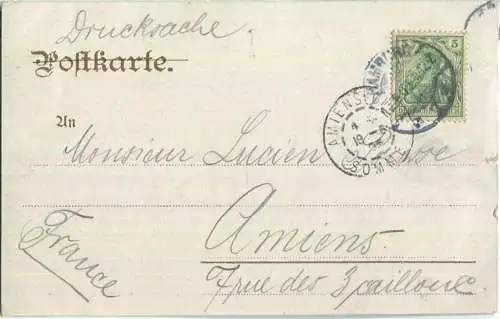 Drucksache
Postkarte.
An
Monsieur Lucien
Amiens.
7 rue des 3 cailloux
France
5
AMIENS
SOMME